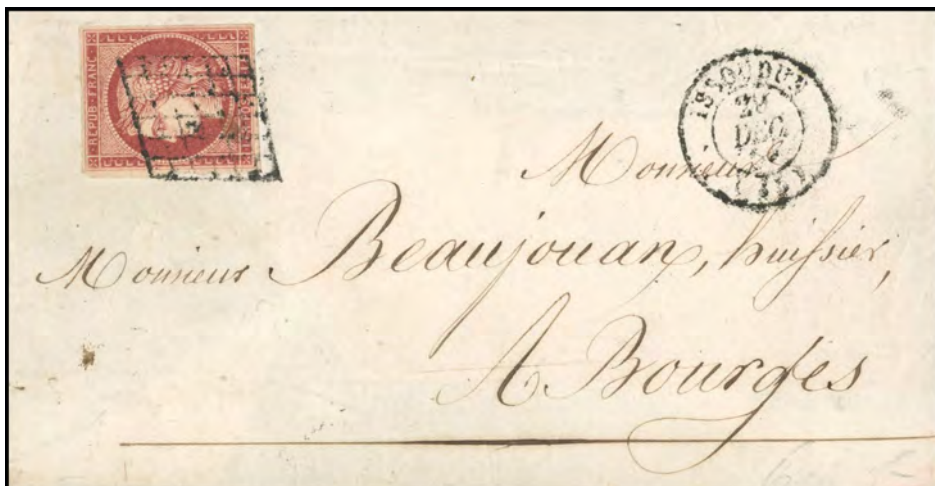 REPUB. FRANC.
ISSOUDUN
DEC.
(35)
Monsieur
Monsieur Beaujouan, huissier,
A Bourges